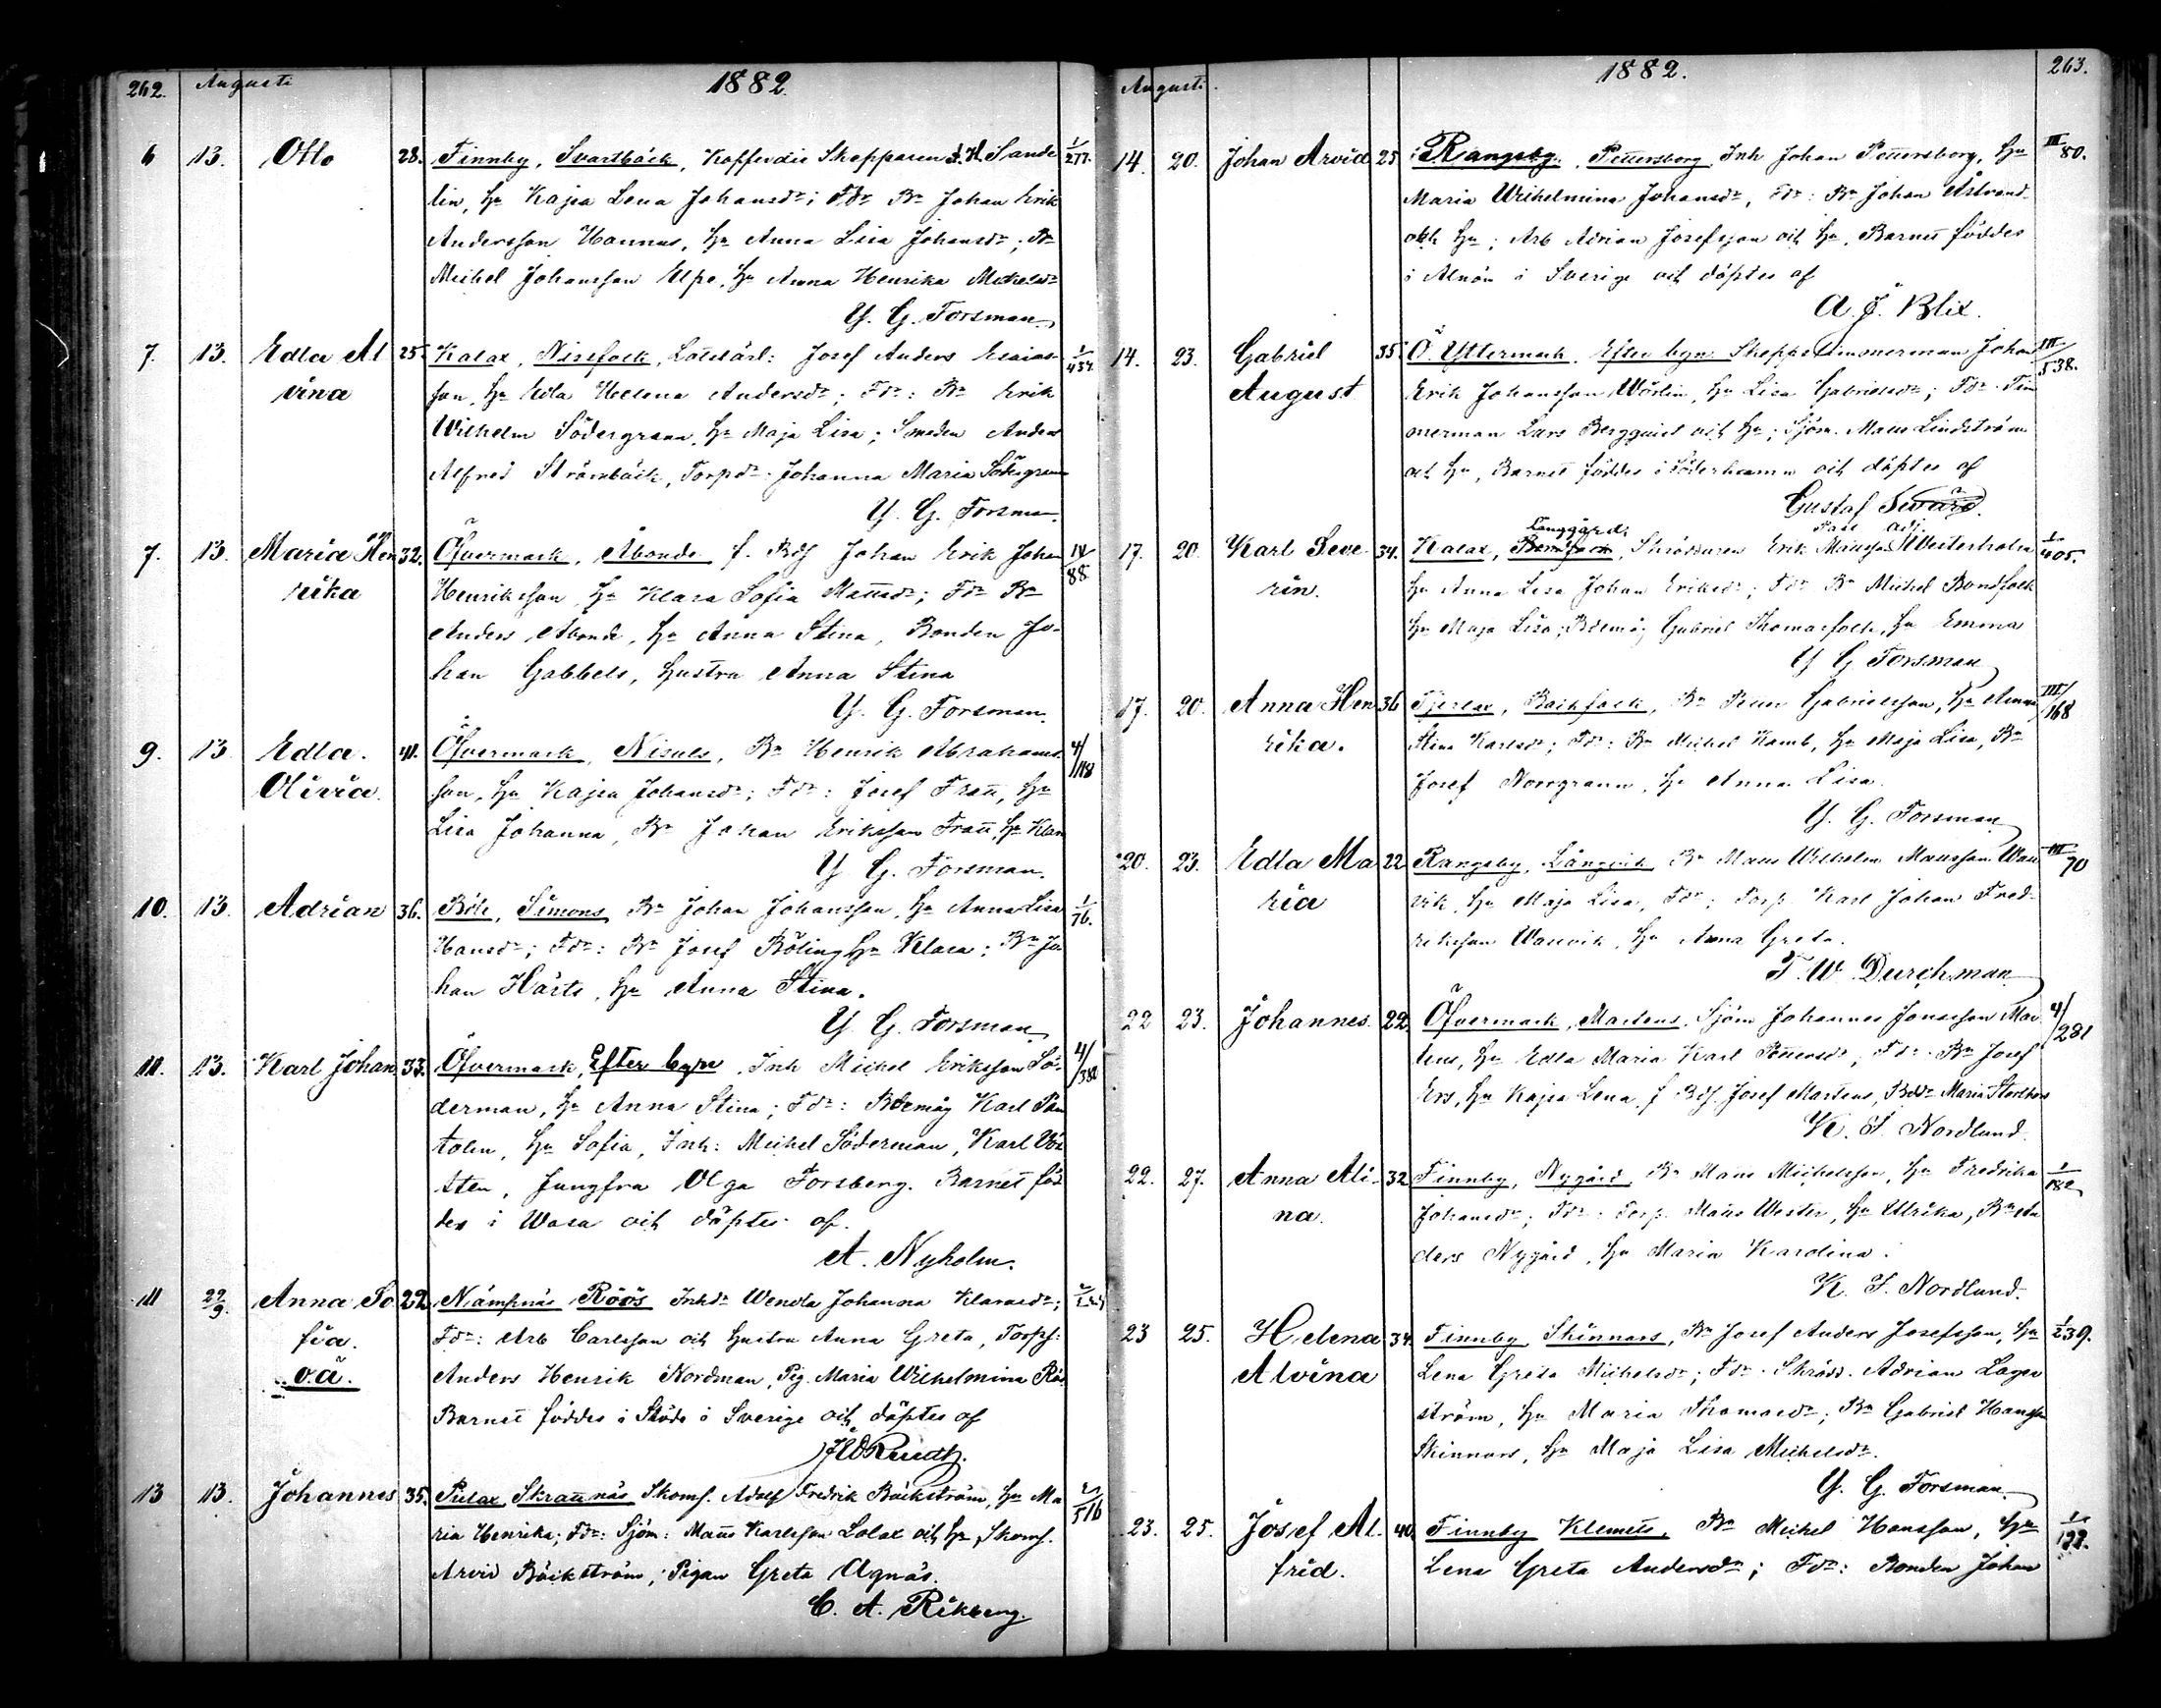 262. Augusti 1882.
6 13. Otto 28. Finnby, Svartbäck, Kofferdie Skepparen J. H. Sande
lin, Hu Kajsa Lena Johansdr; Fdr Bn Johan Erik
Andersson Hannus, Hu Anna Lisa Johansdr; Bn
Michel Johansson Ulpe, Hu Anna Henrika Mickelsdr 1/277.
Y. G. Forsman.
7. 13. Edla Al 25. Kalax, Nissfolk, Josef Anders Esaias-
vina son, Hu Edla Helena Andersdr; Fdr: Bn Erik
Wilhelm Södergrann, Hu Maja Lisa; Smeden Anders
Alfred Strömbäck, Torpdr Johanna Maria Södergrann
Y. G. Forsman.
7. 13. Maria Hen 32. Öfvermark, Åbonde f. Bds Johan Erik Johan
rika Henriksson, Hu Klara Sofia Mattsdr; Fdr Bn 88
Anders Åbonde, Hu Anna Stina, Bonden Jo-
han Gabbels, Hustru Anna Stina
Y. G. Forsman.
9. 13 Edla 41. Öfvermark, Nisuls, Bn Henrik Abrahams- 4/118
Olivia. son, Hu Kajsa Johansdr; Fdr: Josef Fratt, Hu
Lisa Johanna, Bn Johan Eriksson Fratt, Hu Klara
Y G. Forsman.
10. 13. Adrian 36. Böle, Simons Bn Johan Johansson, Hu Anna Lisa 1/76.
Hansdr; Fdr: Bn Josef Böling Hu Klara; Bn Jo
han Härts, Hu Anna Stina.
Y. G. Forsman
11. 13. Karl Johan 33. Öfvermark, Efter byn, Inh Michel Eriksson Sö- 4/380
derman, Hu Anna Stina; Fdr: Bdemåg Karl
Hu Sofia, Inh: Michel Söderman, Karl
Jungfru Olga Forsberg. Barnet föd
des i Wasa och döptes af.
A. Nyholm.
11 22/9. Anna So 22. Nämpnäs Röös Inhdr Wendla Johanna Klarasdr;
fia. Fdr: Arb Carlsson och hustru Anna Greta, Torps:
o.ä. Anders Henrik Nordman, Pig. Maria Wilhelmina Röös
Barnet föddes i Stöde i Sverige och döptes af
13 13. Johannes 35. Pielax, Skrattnäs Skoms. Adolf Fredrik Bäckström, Hu Ma 516
ria Henrika; Fdr: Sjöm: Matts Karlsson Lolax och Hu, Skoms.
Arvid Bäckström, Pigan Greta Agnäs.
C. A. Rikberg.
Augusti. 1882. 263.
14. 20. Johan Arvid 25 Rangsby, Pettersborg Inh Johan Pettersborg, Hu III/80.
Maria Wilhelmina Johansdr, Fdr: Bn Johan Åstrand
och Hu; Arb Adrian Josefsson och Hu, Barnet föddes
i Alnön i Sverige och döptes af
A. J. Blix.
14. 23. Gabriel 35 Ö. Yttermark, Efter byn Skeppstimmerman Johan III/538.
August Erik Johansson Wörlin, Hu Lisa Gabrielsdr; Fdr Tim
merman Lars Bergquist och Hu; Sjöm. Matts Lindström
och Hu, Barnet föddes i Söderhamn och döptes af
Gustaf Swärd.
Past adj.
Långgärds
17. 20. Karl Seve 34. Kalax, Skräddaren Erik Mattsson Westerholm 405.
rin. Hu Anna Lisa Johan Eriksdr; Fdr Bn Michel Bondfolk
Hu Maja Lisa; Bdemåg Gabriel Thomasfolk, Hu Emma
Y G Forsman
17. 20. Anna Hen 36 Tjerlax, Backfolk, Bn Petter Gabrielsson, Hu Anna III/168
rika. Stina Karlsdr; Fdr: Bn Michel Kamb, Hu Maja Lisa, Bn
Josef Norrgrann, Hu Anna Lisa.
Y. G. Forsman
20. 23. Edla Ma 22 Rangsby, Långvik Bn Matts Wilhelm Mattsson Wan III/70
ria vik, Hu Maja Lisa, Fdr; Torp. Karl Johan Fred-
riksson Wanvik, Hu Anna Greta.
F. W. Durchman
22 23. Johannes 22 Öfvermark, Martens, Sjöm Johannes Jonasson Mar 4/281
tens, Hu Edla Maria Karl Pettersdr; Fdr: Bn Josef
Ers, Hu Kajsa Lena, f Bds. Josef Martens, Bdr Maria Storthors
K. J. Nordlund.
22. 27. Anna Ali- 32 Finnby, Nygård, Bn Matts Michelsson, Hu Fredrika 1/182
na. Johansdr; Fdr: Torp. Matts Wester, Hu Ulrika, Bn An
ders Nygård, Hu Maria Karolina.
K. J. Nordlund.
23 25. Helena 34. Finnby, Skinnars, Bn Josef Anders Josefsson, Hu 1/239.
Alvina Lena Greta Michelsdr; Fdr. Skrädd. Adrian Lager
ström, Hu Maria Thomasdr; Bn Gabriel Hansson
Skinnars, Hu Maja Lisa Michelsdr.
Y. G. Forsman.
23. 25. Josef Al- 40 Finnby Klemets, Bn Michel Hansson, Hu
frid. Lena Greta Andersdr; Fdr: Bonden Johan